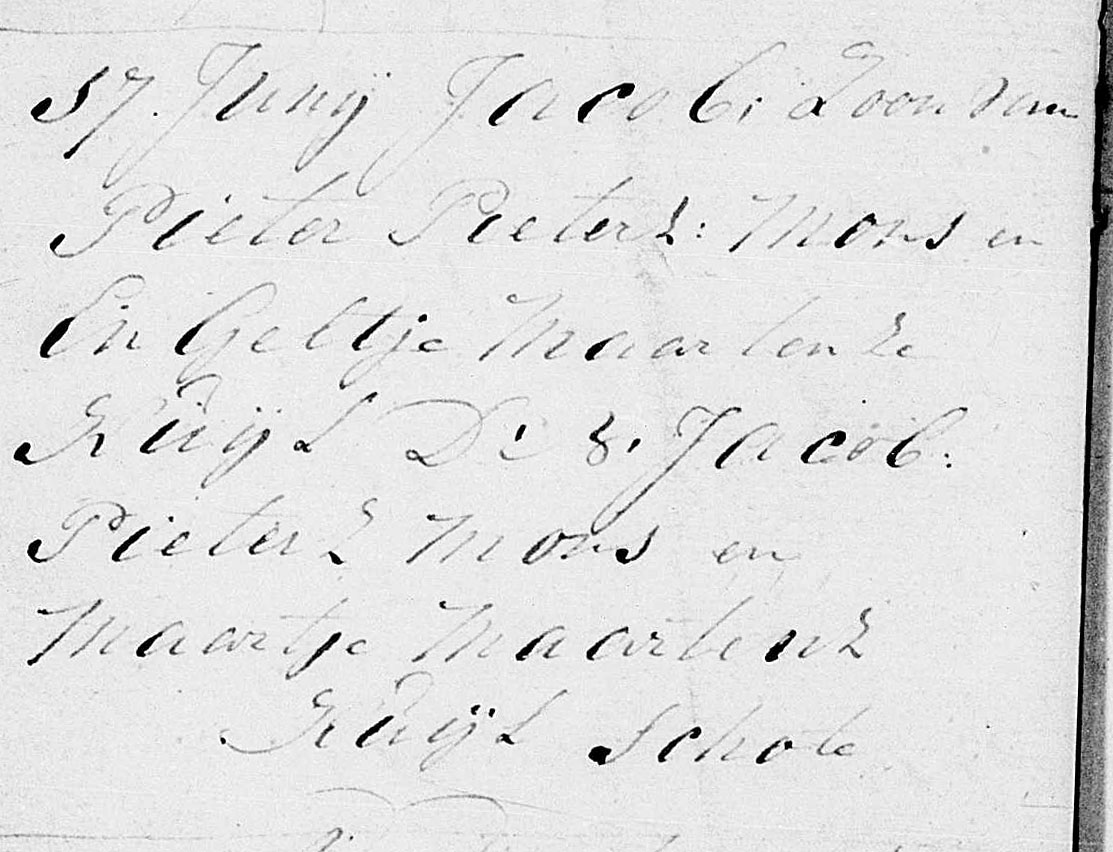 17. Junij Jacob, Zoon van
Pieter Pieterz: Mons en
Engeltje Maartenze
Kuijl D: 8, Jacob:
Pieterz Mons en
Maartje Maartenz
Kuijl Schote